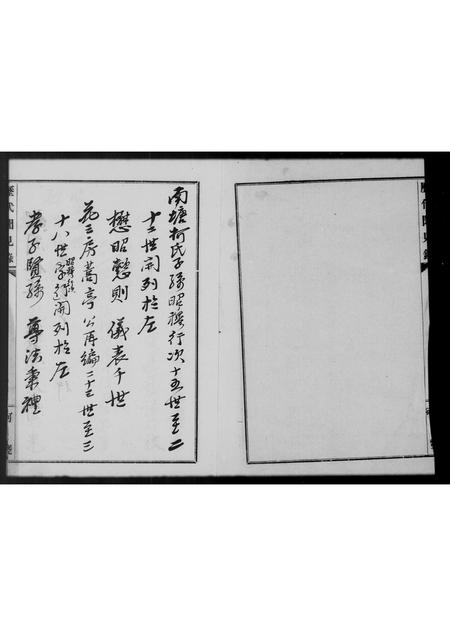 南塘柯氏子孫昭穆行次十五世至二
十二世開列於左
懋昭懿則　儀表千世
花三房蒿亭公再編二十三世至三
十八世字行開列於左
孝子賢孫　尊法秉禮
歷代聞見錄